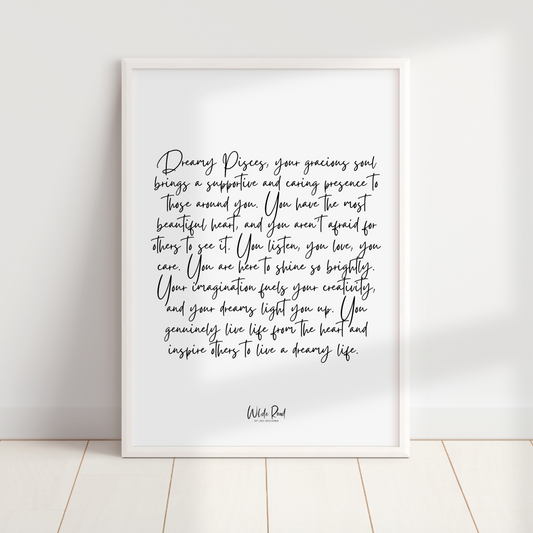 Dreamy Pisces, your gracious soul
brings a supportive and caring presence to
those around you. You have the most
beautiful heart, and you aren't afraid for
others to see it. You listen, you love, you
care. You are here to shine so brightly.
Your imagination fuels your creativity,
and your dreams light you up. You
genuinely live life from the heart and
inspire others to live a dreamy life.
Wilde Road